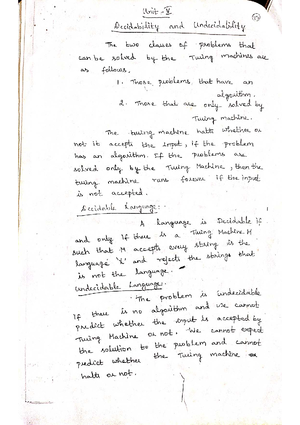 Unit - V
Decidability and Undecidability
The two classes of problems that
can be solved by the Turing machines are
as follows,
1. Those problems that have an
algorithm.
2. Those that are only solved by
Turing machine.
The turing machine halts whether or
not it accepts the input, if the problem
has an algorithm. If the problems are
solved only by the Turing Machine, then the
turing machine runs forever if the input
is not accepted.
Decidable Language:-
A language is Decidable if
and only if there is a Turing Machine M
such that M accepts every string is the
language 'L' and rejects the strings that
is not the language.
Undecidable Language:-
The problem is undecidable
if there is no algorithm and we cannot
predict whether the input is accepted by
Turing Machine or not. We cannot expect
the solution to the problem and cannot
predict whether the Turing machine
halts or not.